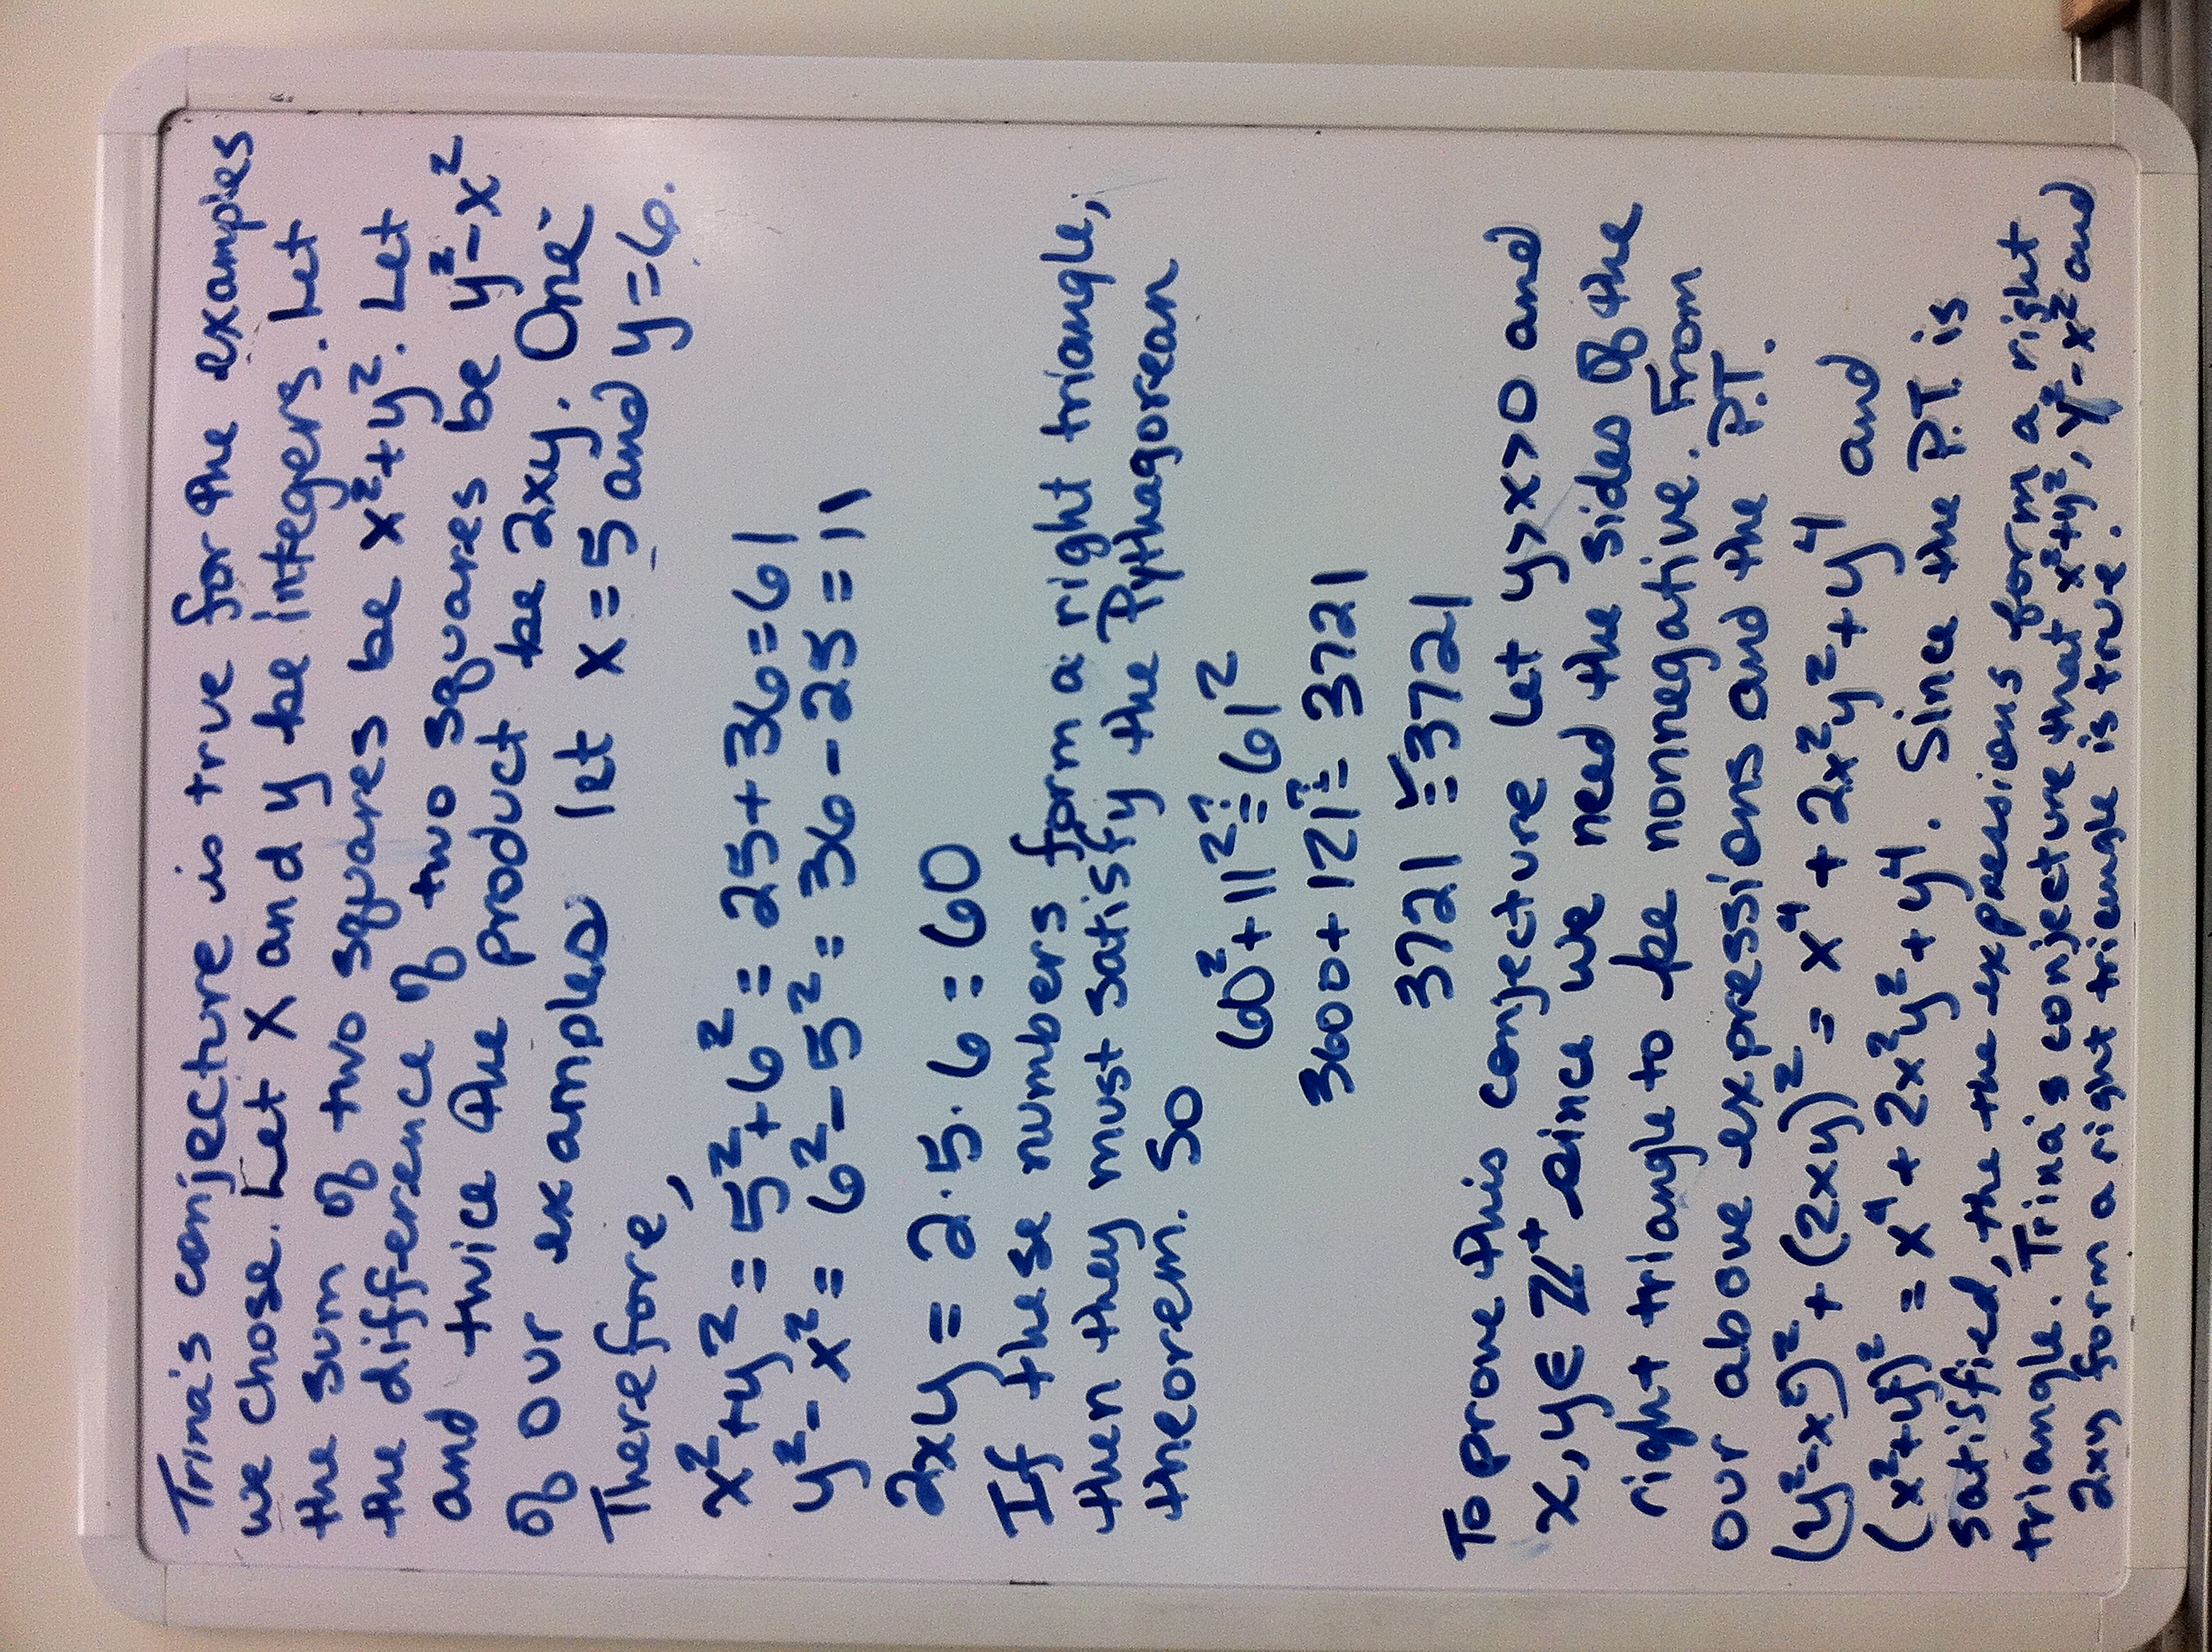 Trina's conjecture is true for the examples
we chose. Let x and y be integers. Let
the sum of two squares be x²+y². Let
the difference of two squares be y²-x²
and twice the product be 2xy. One
of our examples let x = 5 and y = 6.
Therefore,
x²+y² = 5²+6² = 25+36 = 61
y²-x² = 6²-5² = 36-25 = 11
2xy = 2·5·6 = 60
If these numbers form a right triangle,
then they must satisfy the Pythagorean
theorem. So
60²+11² ≟ 61²
3600+121 ≟ 3721
3721 =✓ 3721
To prove this conjecture let y>x>0 and
x,y∈ℤ⁺ since we need the sides of the
right triangle to be nonnegative. From
our above expressions and the P.T.
(y²-x²)²+(2xy)² = x⁴+2x²y²+y⁴ and
(x²+y²)² = x⁴+2x²y²+y⁴. Since the P.T is
satisfied, the the expressions form a right
triangle. Trina's conjecture that x²+y², y²-x² and
2xy form a right triangle is true.